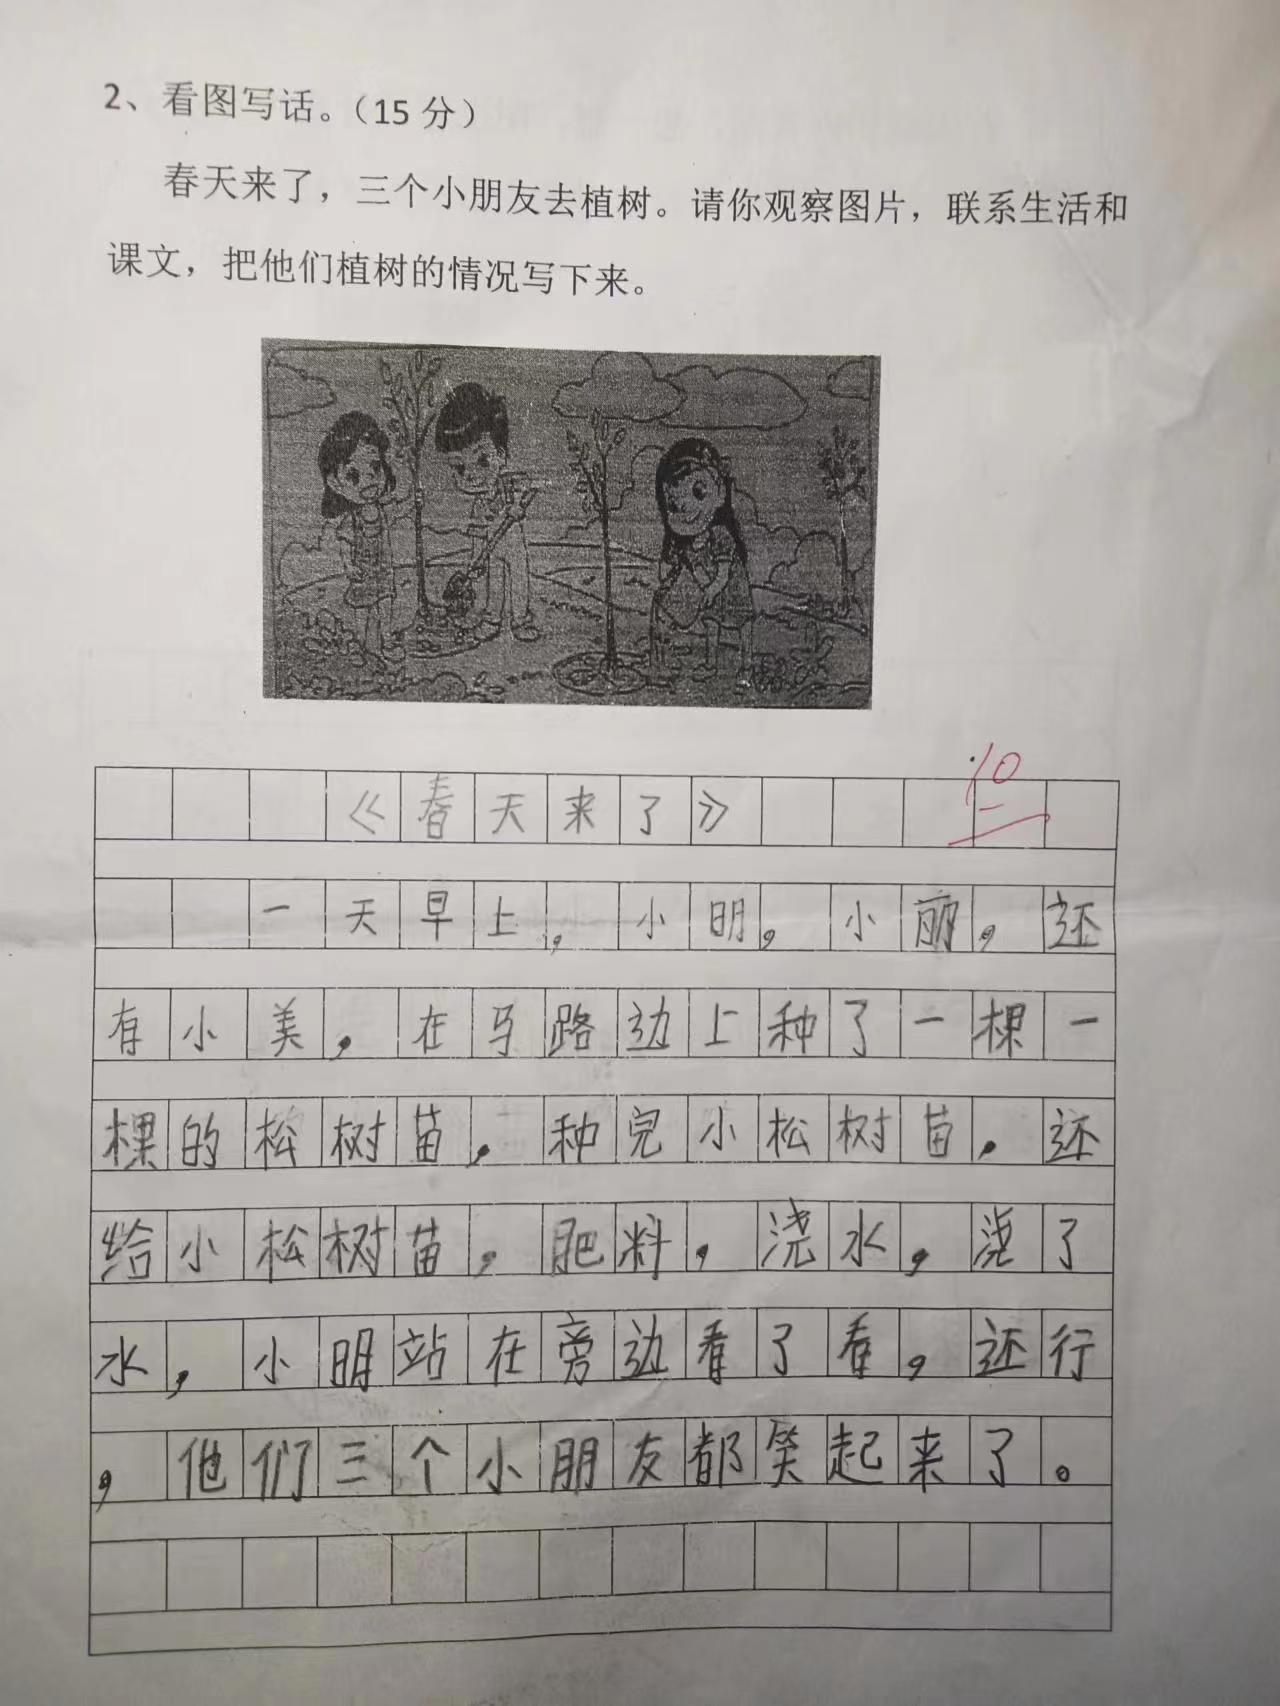 2、看图写话。（15 分）
春天来了，三个小朋友去植树。请你观察图片，联系生活和
课文，把他们植树的情况写下来。
10
《春天来了》
一天早上，小明，小丽，还
有小美，在马路边上种了一棵一
棵的松树苗，种完小松树苗，还
给小松树苗，肥料，浇水，浇了
水，小明站在旁边看了看，还行
，他们三个小朋友都笑起来了。